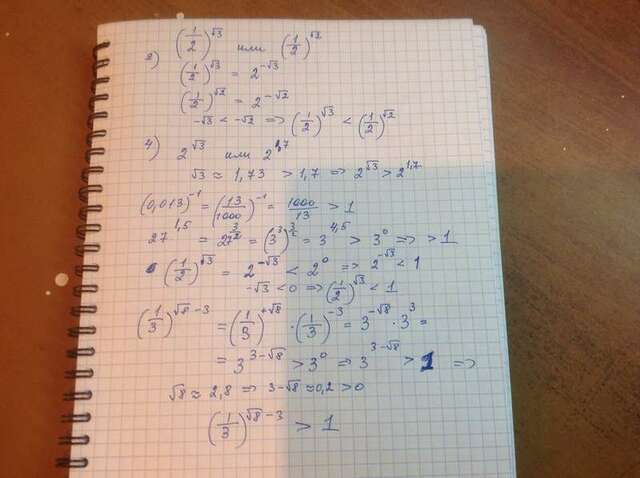 2) (1/2)^√3 или (1/2)^√2
(1/2)^√3 = 2^-√3
(1/2)^√2 = 2^-√2
-√3 < -√2 => (1/2)^√3 < (1/2)^√2
4) 2^√3 или 2^1,7
√3 ≈ 1,73 > 1,7 => 2^√3 > 2^1,7
(0,013)^-1 = (13/1000)^-1 = 1000/13 > 1
27^1,5 = 27^(3/2) = (3^3)^(3/2) = 3^4,5 > 3^0 => > 1
(1/2)^√3 = 2^-√3 < 2^0 => 2^-√3 < 1
-√3 < 0 => (1/2)^√3 < 1
(1/3)^(√8-3) = (1/3)^+√8 · (1/3)^-3 = 3^-√8 · 3^3 =
= 3^(3-√8) > 3^0 => 3^(3-√8) > 1 =>
√8 ≈ 2,8 => 3-√8 ≈ 0,2 > 0
(1/3)^(√8-3) > 1